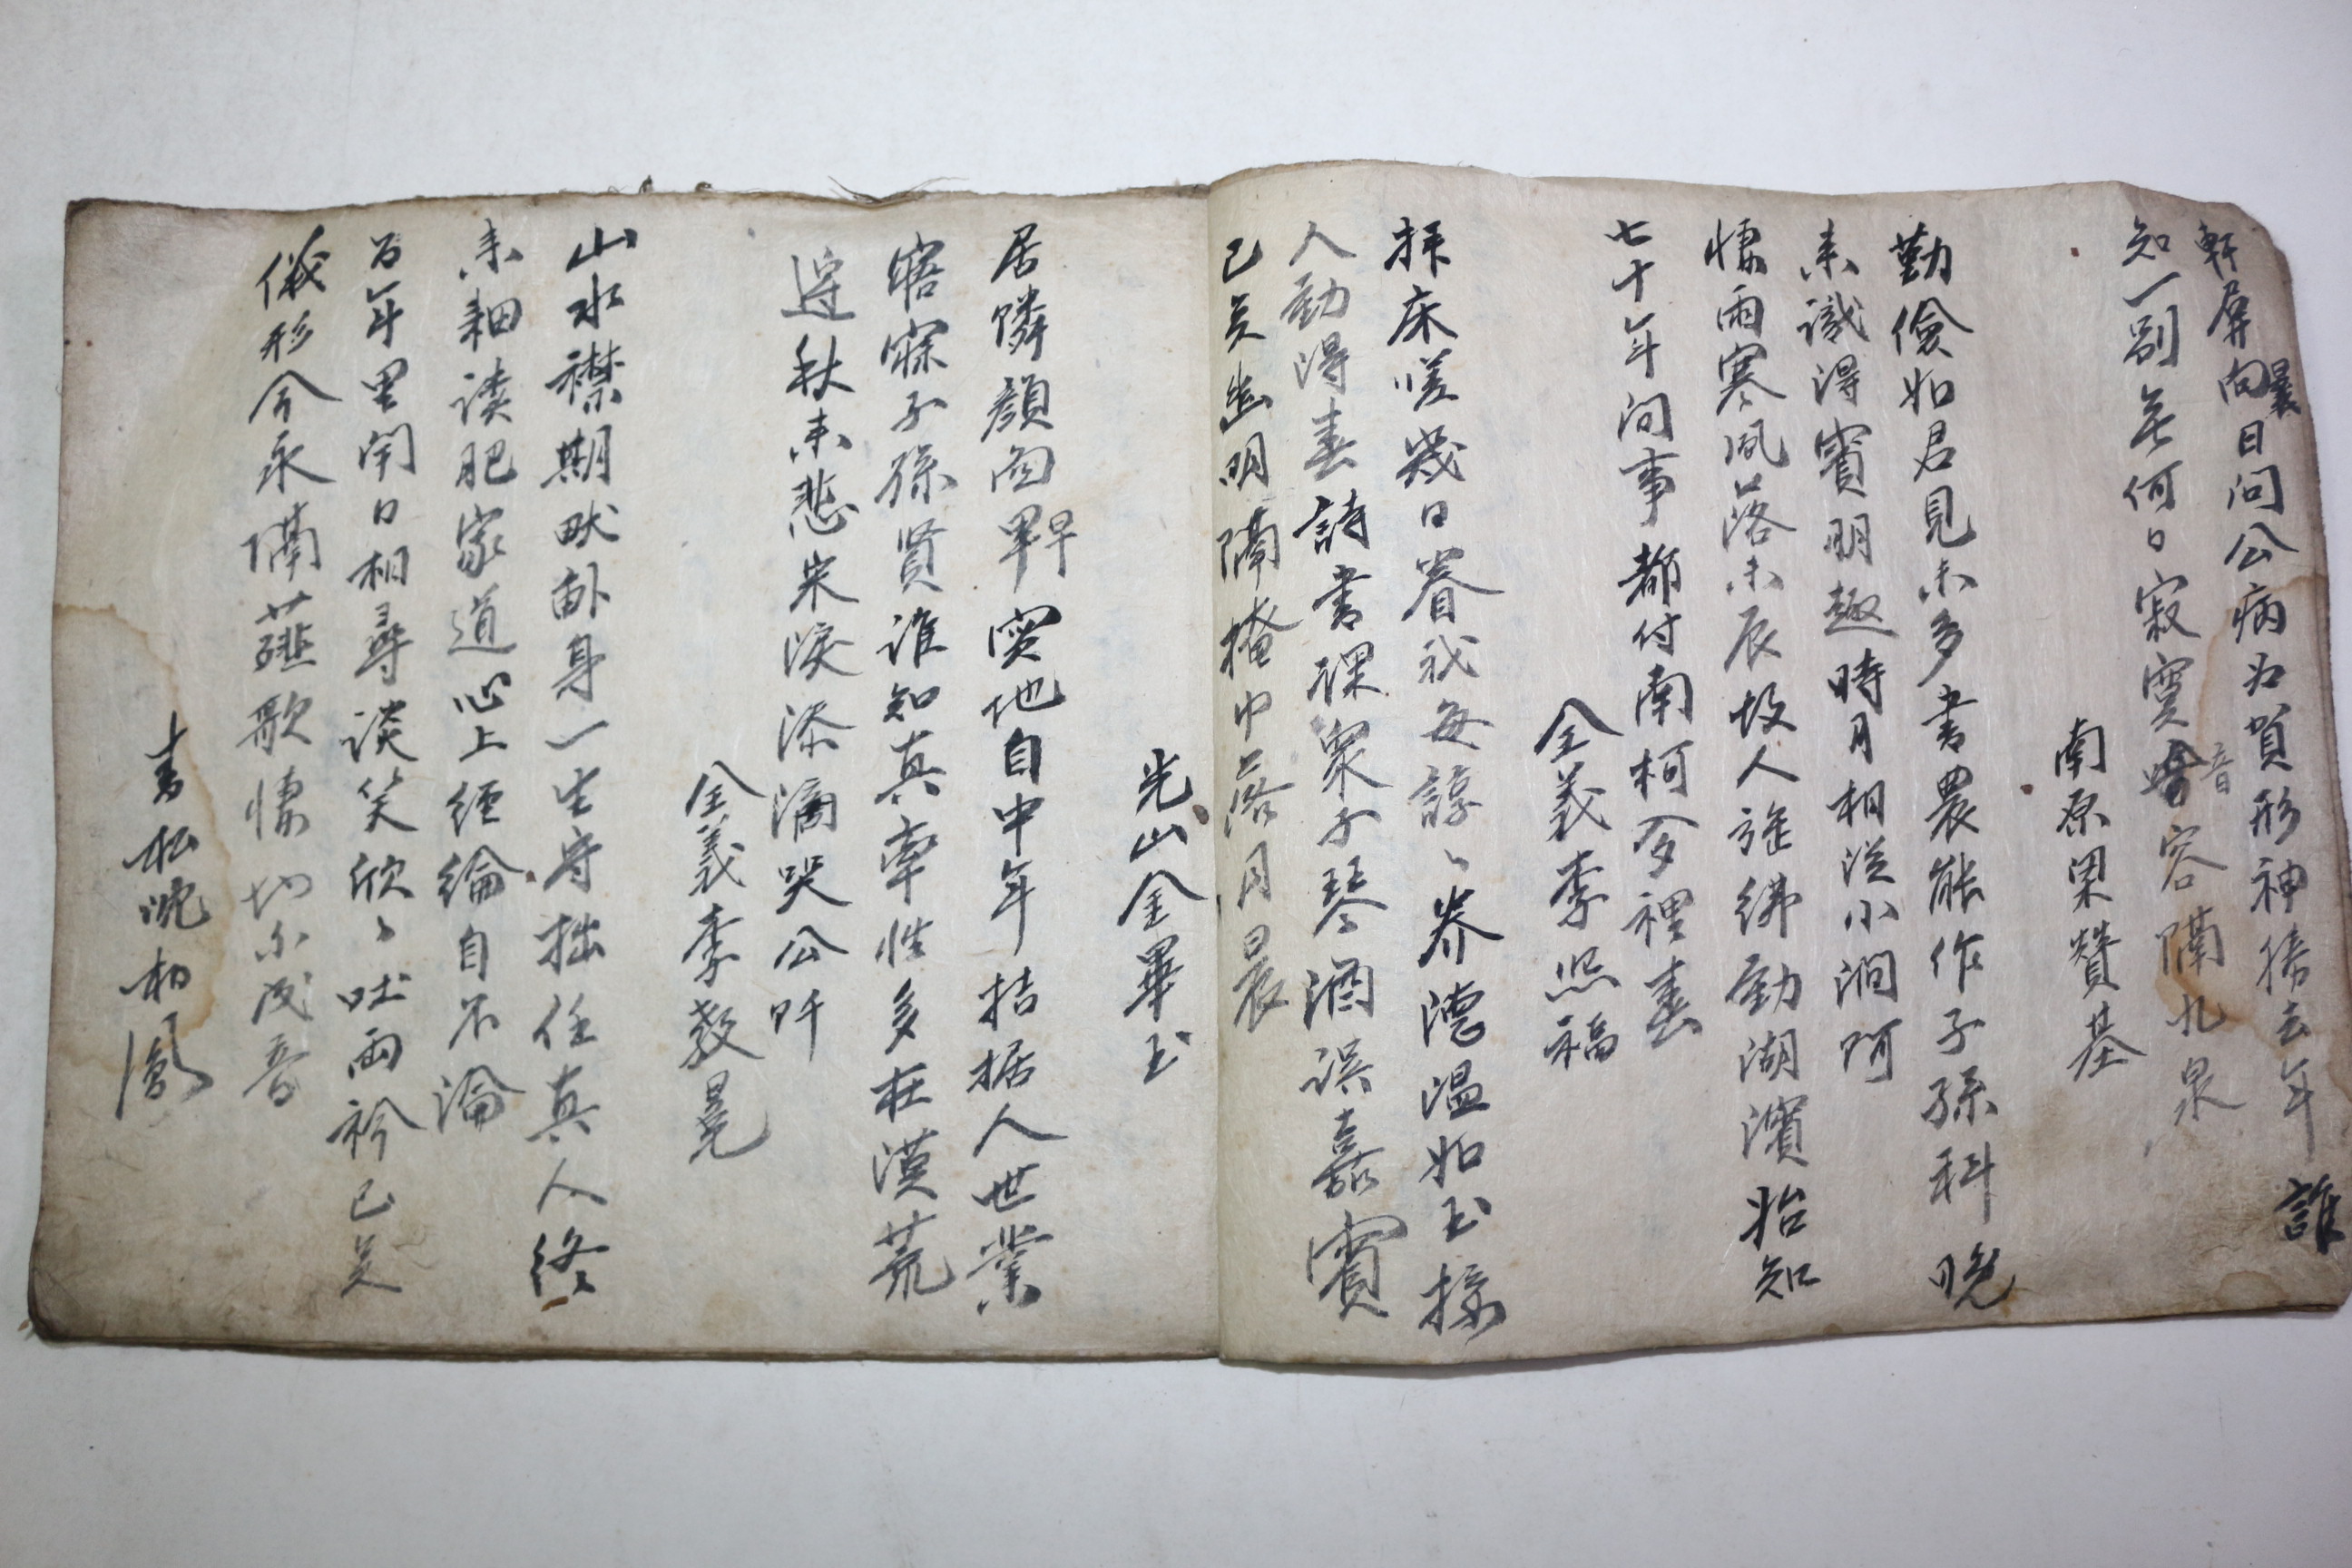 軒屛向曩日問公病為賀形神勝去年 誰
知一別無何日寂寞音容隔九泉
南原梁贊基
勤儉如君見未多書農能作子孫科晚
來識得賓朋趣時月相從小澗阿
悽雨寒風落木辰故人旌紼動湖濱始知
七十年间事都付南柯夢裡春
全義李熙福
拝床嗟幾日眷我每諄〻养德温如玉接
人動得春詩書課衆子琴酒誤嘉賓
已矣幽明隔掩巾落月晨
光山金畢玉
居隣顔面早窆地自中年拮据人世業
寤寐子孫賢谁知真率性多在漠荒
邊秋來悲宋淚添滴哭公阡
全義李敎晃
山水襟期畎畝身一生守拙任真人終
未細读肥家道心上經綸自不淪
百年里闬日相尋談笑欣〻吐兩衿已矣
儀形今永隔薤歌悽切不成音
青松沈相鳳